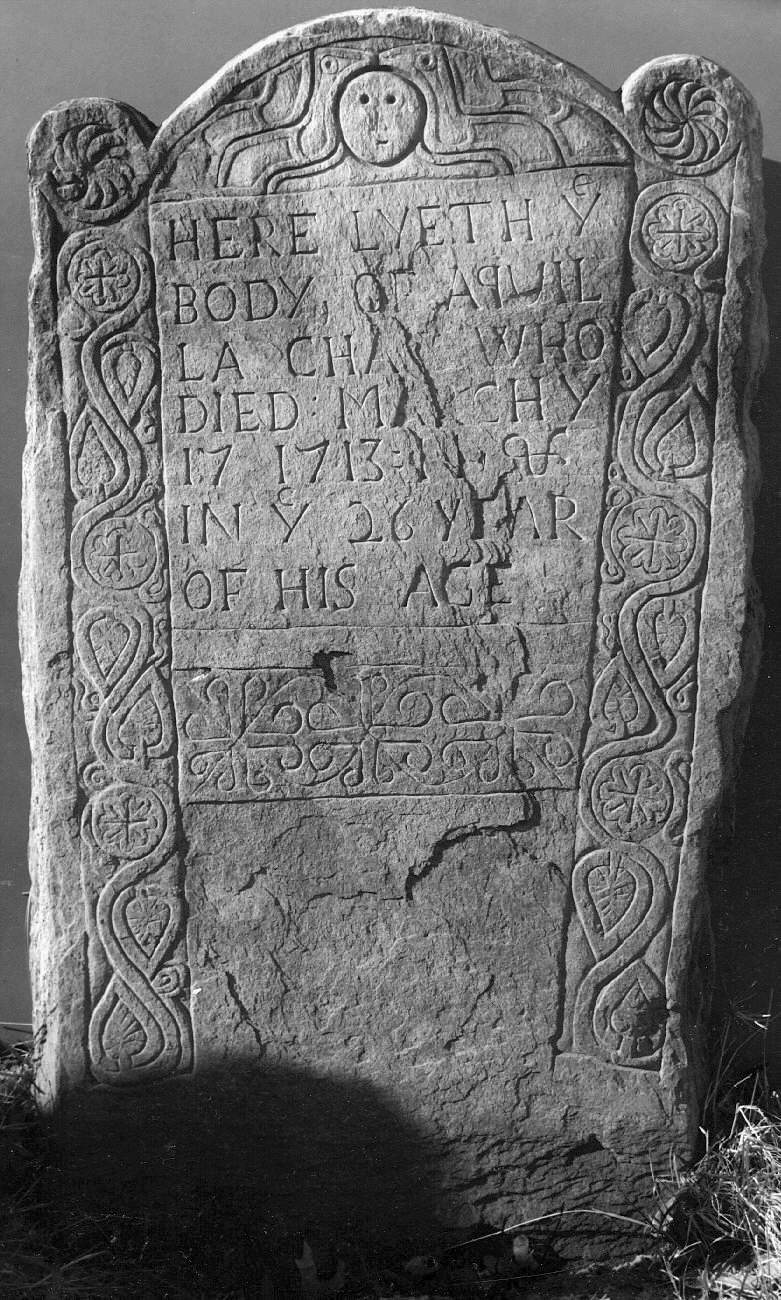 HERE LYETH Yᴱ
BODY, OF AQUIL
LA CHA WHO
DIED : MARCH Y
17 1713 : &
IN Yᴱ 26 YEAR
OF HIS AGE